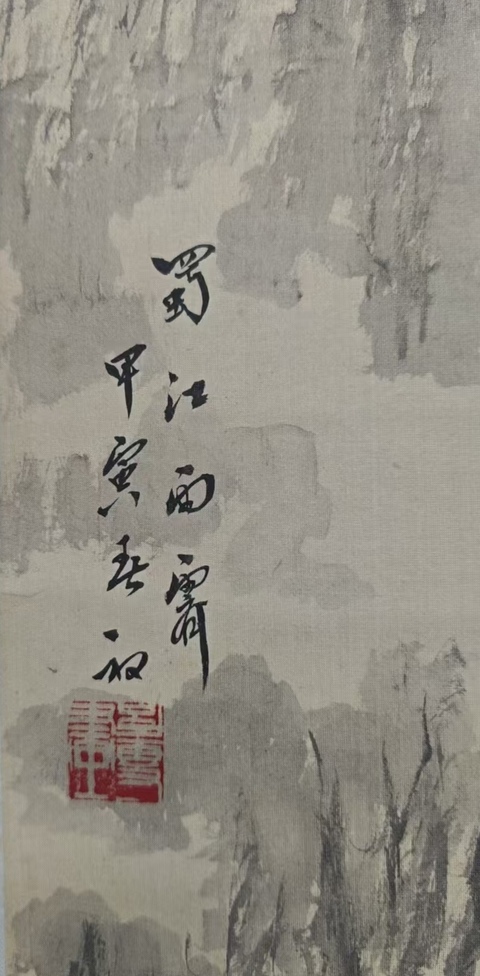 蜀江雨霽
甲寅春初